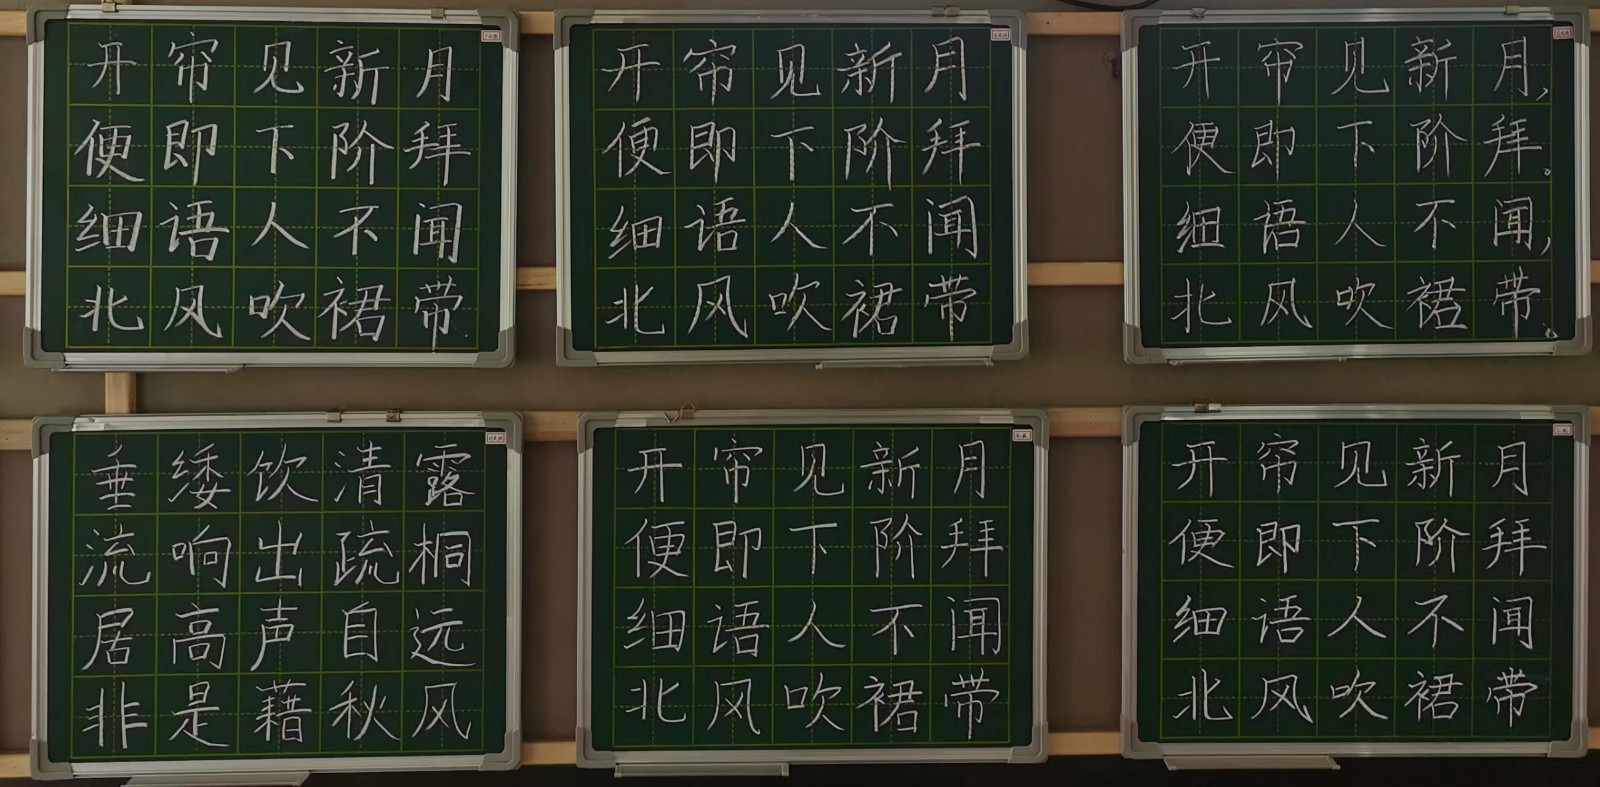 开帘见新月
便即下阶拜
细语人不闻
北风吹裙带
开帘见新月
便即下阶拜
细语人不闻
北风吹裙带
开帘见新月，
便即下阶拜。
细语人不闻，
北风吹裙带。
垂緌饮清露
流响出疏桐
居高声自远
非是藉秋风
开帘见新月
便即下阶拜
细语人不闻
北风吹裙带
开帘见新月
便即下阶拜
细语人不闻
北风吹裙带